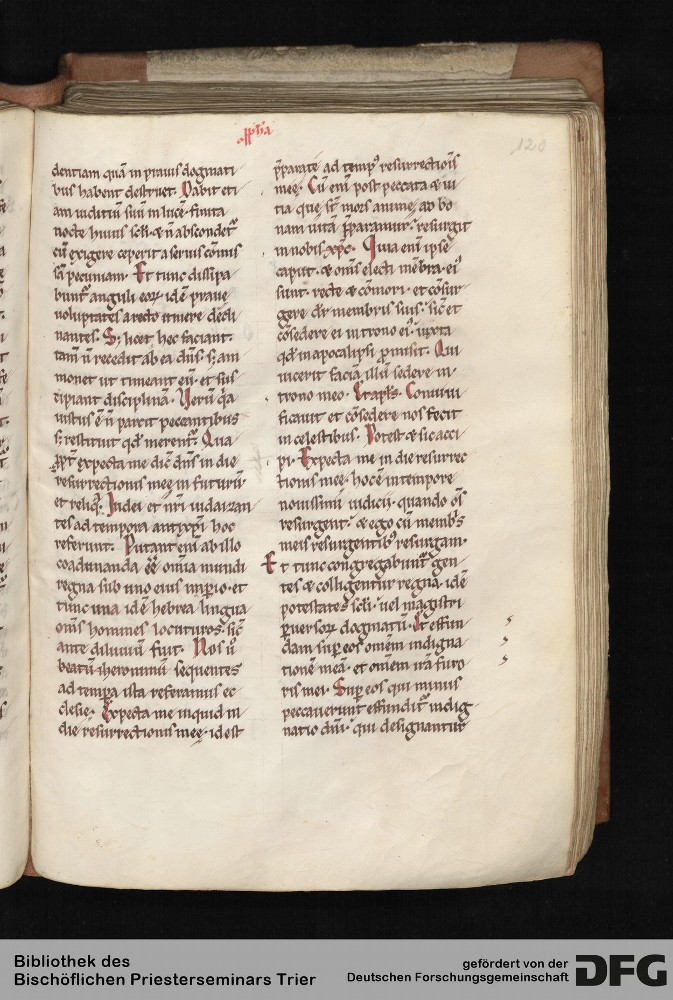 dentiam quā in pravis dogmati
bus habent destruet. Dabit eti
am iuditiū suū in lucē. finita
nocte huius sc̄li. & n̄ abscondet᷑
cū exigere ceperit a servis cōmis
sā pecuniam. Et tunc dissipa
bunt᷑ anguli eoꝝ. idē prave
voluptates a recto itinere decli
nantes. S; licet hec faciant.
tam̄ n̄ recedit ab ea dn̄s. s; am
monet ut timeant eū. et sus
cipiant disciplinā. Verū q̄a
iustus ē n̄ parcit peccantibus
s; restituit qd̄ merent᷑. Qua
ꝓpt̄ expecta me dic̄ dn̄s in die
resurrectionis meę in futurū.
et reliq̄. Iudei et nr̄i iudaizan
tes ad tempora antixp̄i hoc
referunt. Putant eni ab illo
coadunanda ēē om̄ia mundi
regna sub uno eius imp̄io. et
tunc una idē hebrea lingua
om̄s homines locuturos. sic̄
ante diluviū fuit. Nos ū
beatū iheronimū sequentes
ad tempa ista referamus ec
clesię. Expecta me inquid in
die resurrectionis meę. id est
p̄parate ad temp᷒ resurrectiōis
meę. Cū eni post peccata & vi
tia que st̄ mors anime. ad bo
nam vitā p̄paramur. resurgit
in nobis xp̄c. Qui a eni ipse
caput. & om̄s electi mēbra ei᷒
sunt. recte & cōmori. et cōsur
gere dr̄ membris suis. sic̄ et
cōsedere ei in trono ei᷒. iuxta
qd̄ in apocalipsi p̄misit. Qui
vicerit faciā illū sedere in
trono meo. Et apl̄s. Convivi
ficavit et cōsedere nos fecit
in celestibus. Potest & sic acci
pi. Expecta me in die resurrec
tionis meę. hoc ē in tempore
novissimi iudicii. quando om̄s
resurgent. & ego cū membr̄s
meis resurgentib᷒ resurgam.
Et tunc congregabunt᷑ gen
tes & colligentur regna. idē
potestates sc̄li. vel magistri
ꝑversoꝝ dogmatū. Et effun
dam sup̄ eos omēm indigna
tionē meā. et omēm irā furo
ris mei. Sup̄ eos qui minus
peccaverunt effundit᷑ indig
natio dn̄i. qui designantur
120
Bibliothek des
Bischöflichen Priesterseminars Trier
gefördert von der
Deutschen Forschungsgemeinschaft
DFG